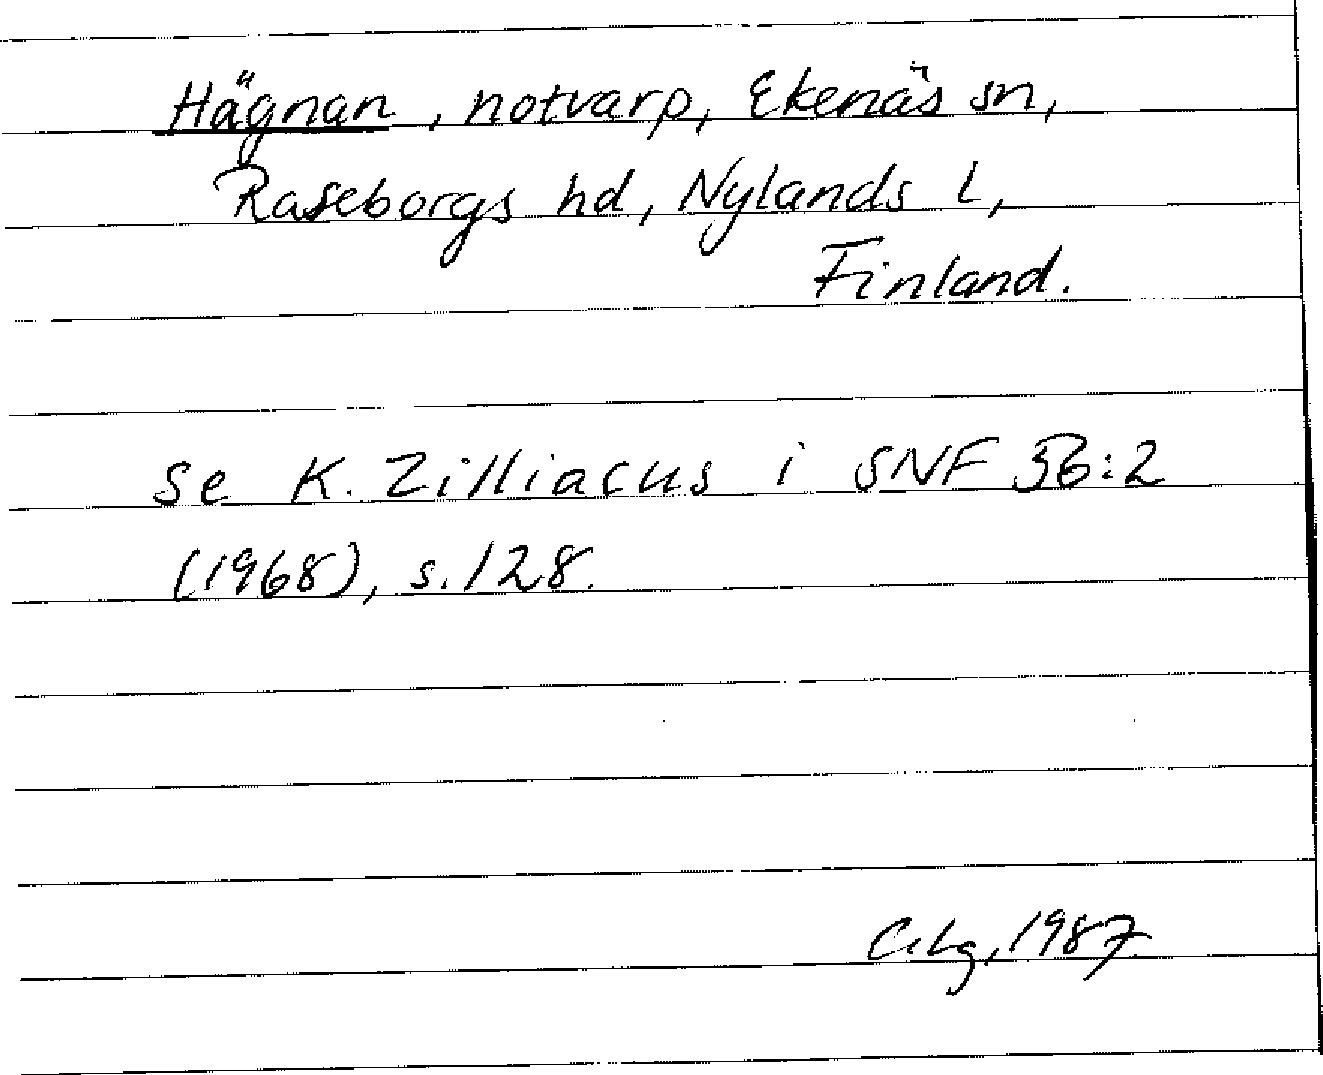 Hägnan, notvarp, Ekenäs sn,
Raseborgs hd, Nylands l,
Finland.
Se K. Zilliacus i SNF 56:2
(1968), s. 128.
C. Lg, 1987.